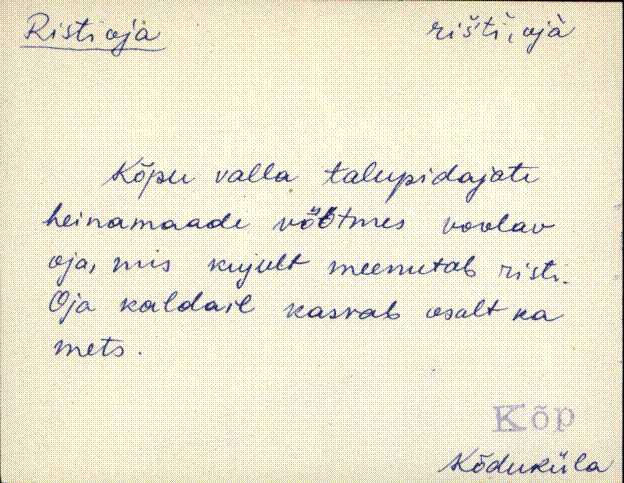 Risti oja rišti, ojà
Kõpu valla talupidajate
heinamaade võtmes voolav
oja, mis kujult meenutab risti.
Oja kaldail kasvab osalt ka
mets.
Kõp
Kõduküla